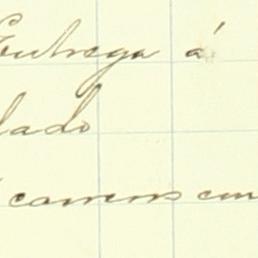 Entrega á
lado
carros em